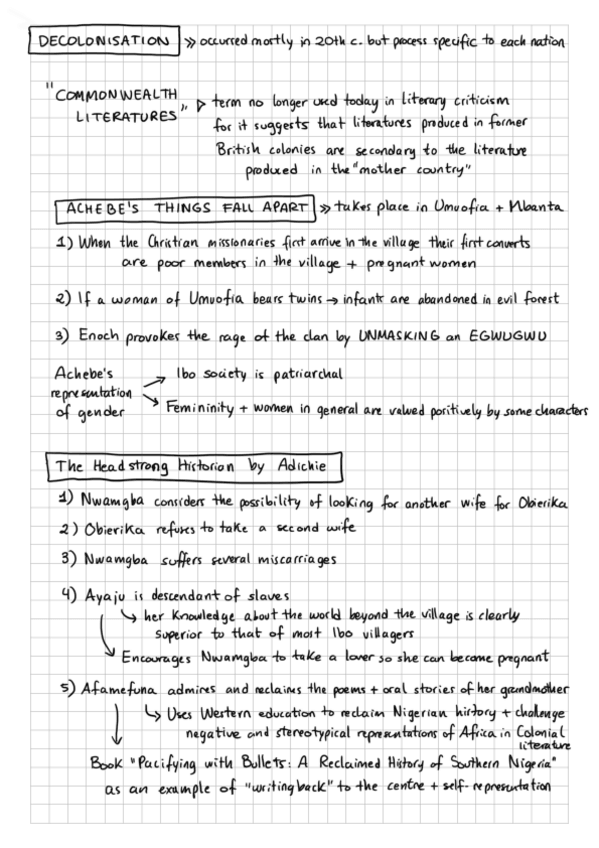 DECOLONISATION » occurred mostly in 20th c. but process specific to each nation
"COMMONWEALTH
LITERATURES" ▷ term no longer used today in literary criticism
for it suggests that literatures produced in former
British colonies are secondary to the literature
produced in the "mother country"
ACHEBE'S THINGS FALL APART » takes place in Umuofia + Mbanta
1) When the Christian missionaries first arrive in the village their first converts
are poor members in the village + pregnant women
2) If a woman of Umuofia bears twins → infants are abandoned in evil forest
3) Enoch provokes the rage of the clan by UNMASKING an EGWUGWU
Achebe's
representation
of gender
→ Ibo society is patriarchal
→ Femininity + women in general are valued positively by some characters
The Headstrong Historian by Adichie
1) Nwamgba considers the possibility of looking for another wife for Obierika
2) Obierika refuses to take a second wife
3) Nwamgba suffers several miscarriages
4) Ayaju is descendant of slaves
↳ her knowledge about the world beyond the village is clearly
superior to that of most Ibo villagers
Encourages Nwamgba to take a lover so she can become pregnant
5) Afamefuna admires and reclaims the poems + oral stories of her grandmother
↳ Uses Western education to reclaim Nigerian history + challenge
negative and stereotypical representations of Africa in Colonial
literature
Book "Pacifying with Bullets: A Reclaimed History of Southern Nigeria"
as an example of "writing back" to the centre + self-representation